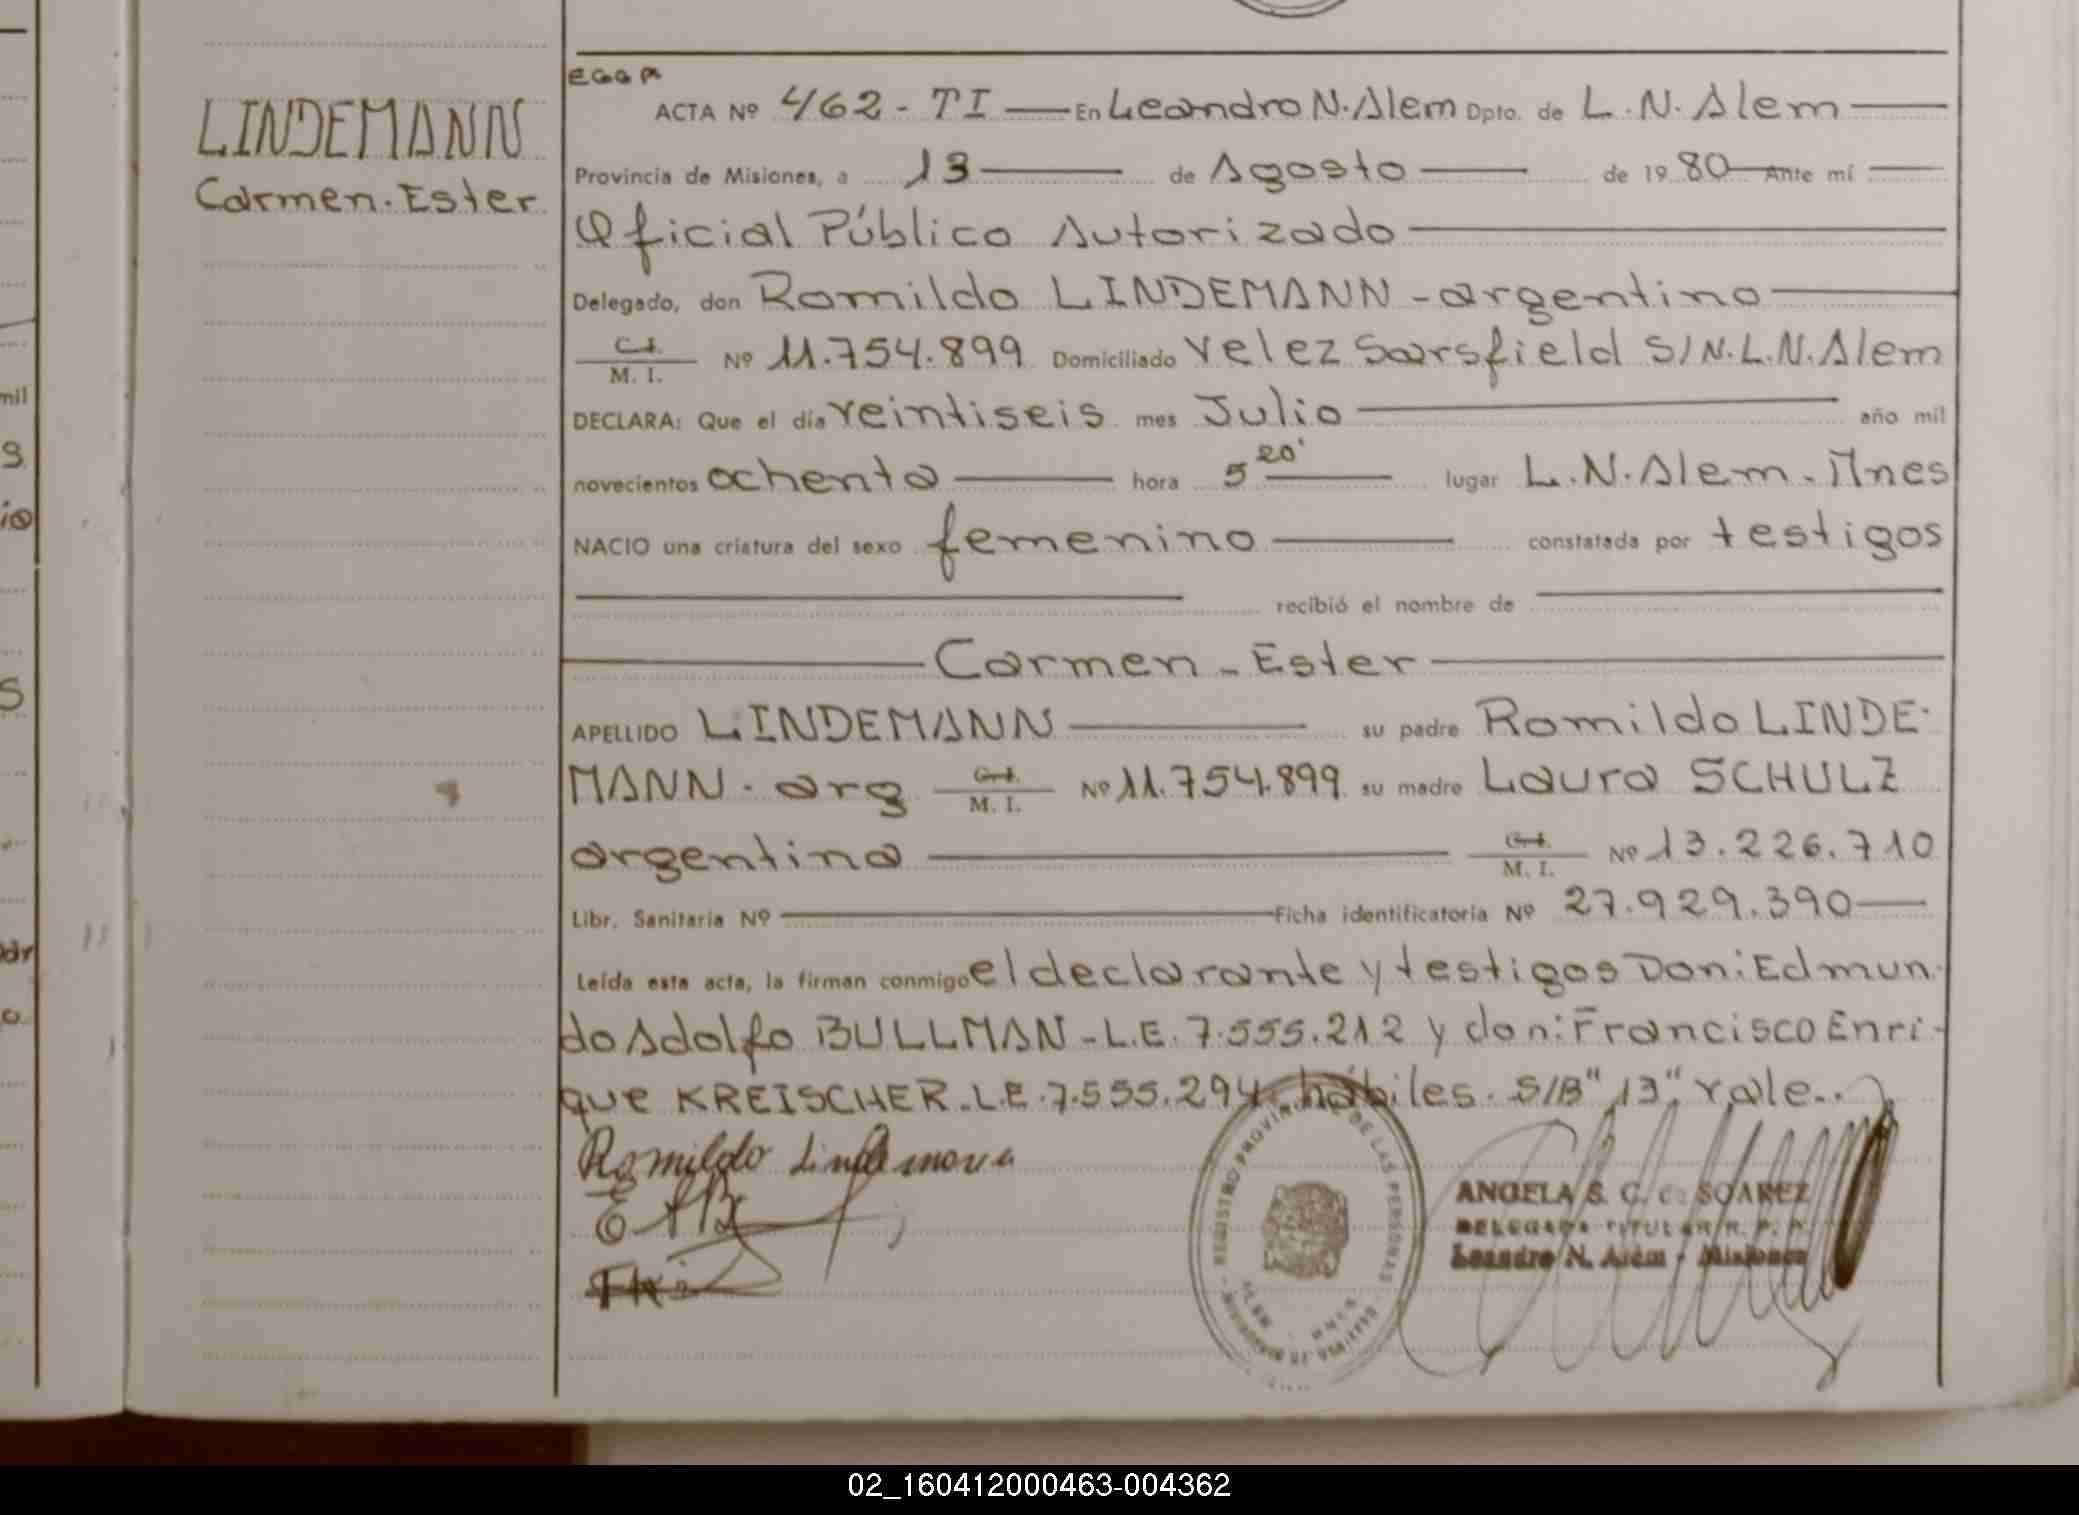 EGGA
LINDEMANN
Carmen. Ester
ACTA Nº 462 - TI — En Leandro N. Alem Dpto. de L. N. Alem —
Provincia de Misiones, a 13 — de Agosto — de 1980 — Ante mí —
Oficial Público Autorizado —
Delegado, don Romildo LINDEMANN - argentino —
C.I. M. I. Nº 11.754.899 Domiciliado Velez Sarsfield S/N. L.N. Alem
DECLARA: Que el día veintiseis mes Julio — año mil
novecientos ochenta — hora 5 20' — lugar L.N. Alem - Mnes
NACIO una criatura del sexo femenino — constatada por testigos
— recibió el nombre de —
— Carmen - Ester —
APELLIDO LINDEMANN — su padre Romildo LINDE-
MANN - arg C.I. M. I. Nº 11.754.899 su madre Laura SCHULZ
argentina — C.I. M. I. Nº 13.226.710
Libr. Sanitaria Nº — Ficha identificatoria Nº 27.929.390 —
Leída esta acta, la firman conmigo el declarante y testigos Don: Edmun-
do Adolfo BULLMAN - L.E. 7.555.212 y don: Francisco Enri-
que KREISCHER. L.E. 7.555.294 hábiles. S/B "13" vale.
Romildo Lindemann
REGISTRO PROVINCIAL DE LAS PERSONAS
ANGELA S. C. de SOAREZ
DELEGADA TITULAR R. P. P.
Leandro N. Alem - Misiones
mil
02_160412000463-004362